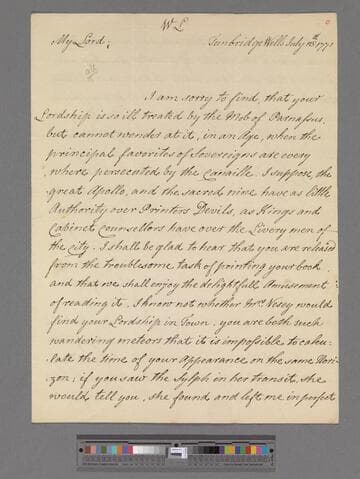 W L
My Lord; Tunbridge Wells July 1771
I am sorry to find, that your
Lordship is so ill treated by the Mob of Parnassus,
but cannot wonder at it, in an Age, when the
principal favorites of Sovereigns are every
where persecuted by the Canaille. I suppose the
great Apollo, and the sacred nine have as little
Authority over Printers Devils, as Kings and
Cabinet Counsellors have over the Livery men of
the City. I shall be glad to hear that you are released
from the troublesome task of printing your book
and that we shall enjoy the delightfull Amusement
of reading it. I know not whether Mrs. Vesey would
find your Lordship in Town, you are both such
wandering meteors that it is impossible to calcu-
late the time of your Appearance on the same Hori-
zon; if you saw the Sylph in her transit, she
would tell you, she found and left me in perfect